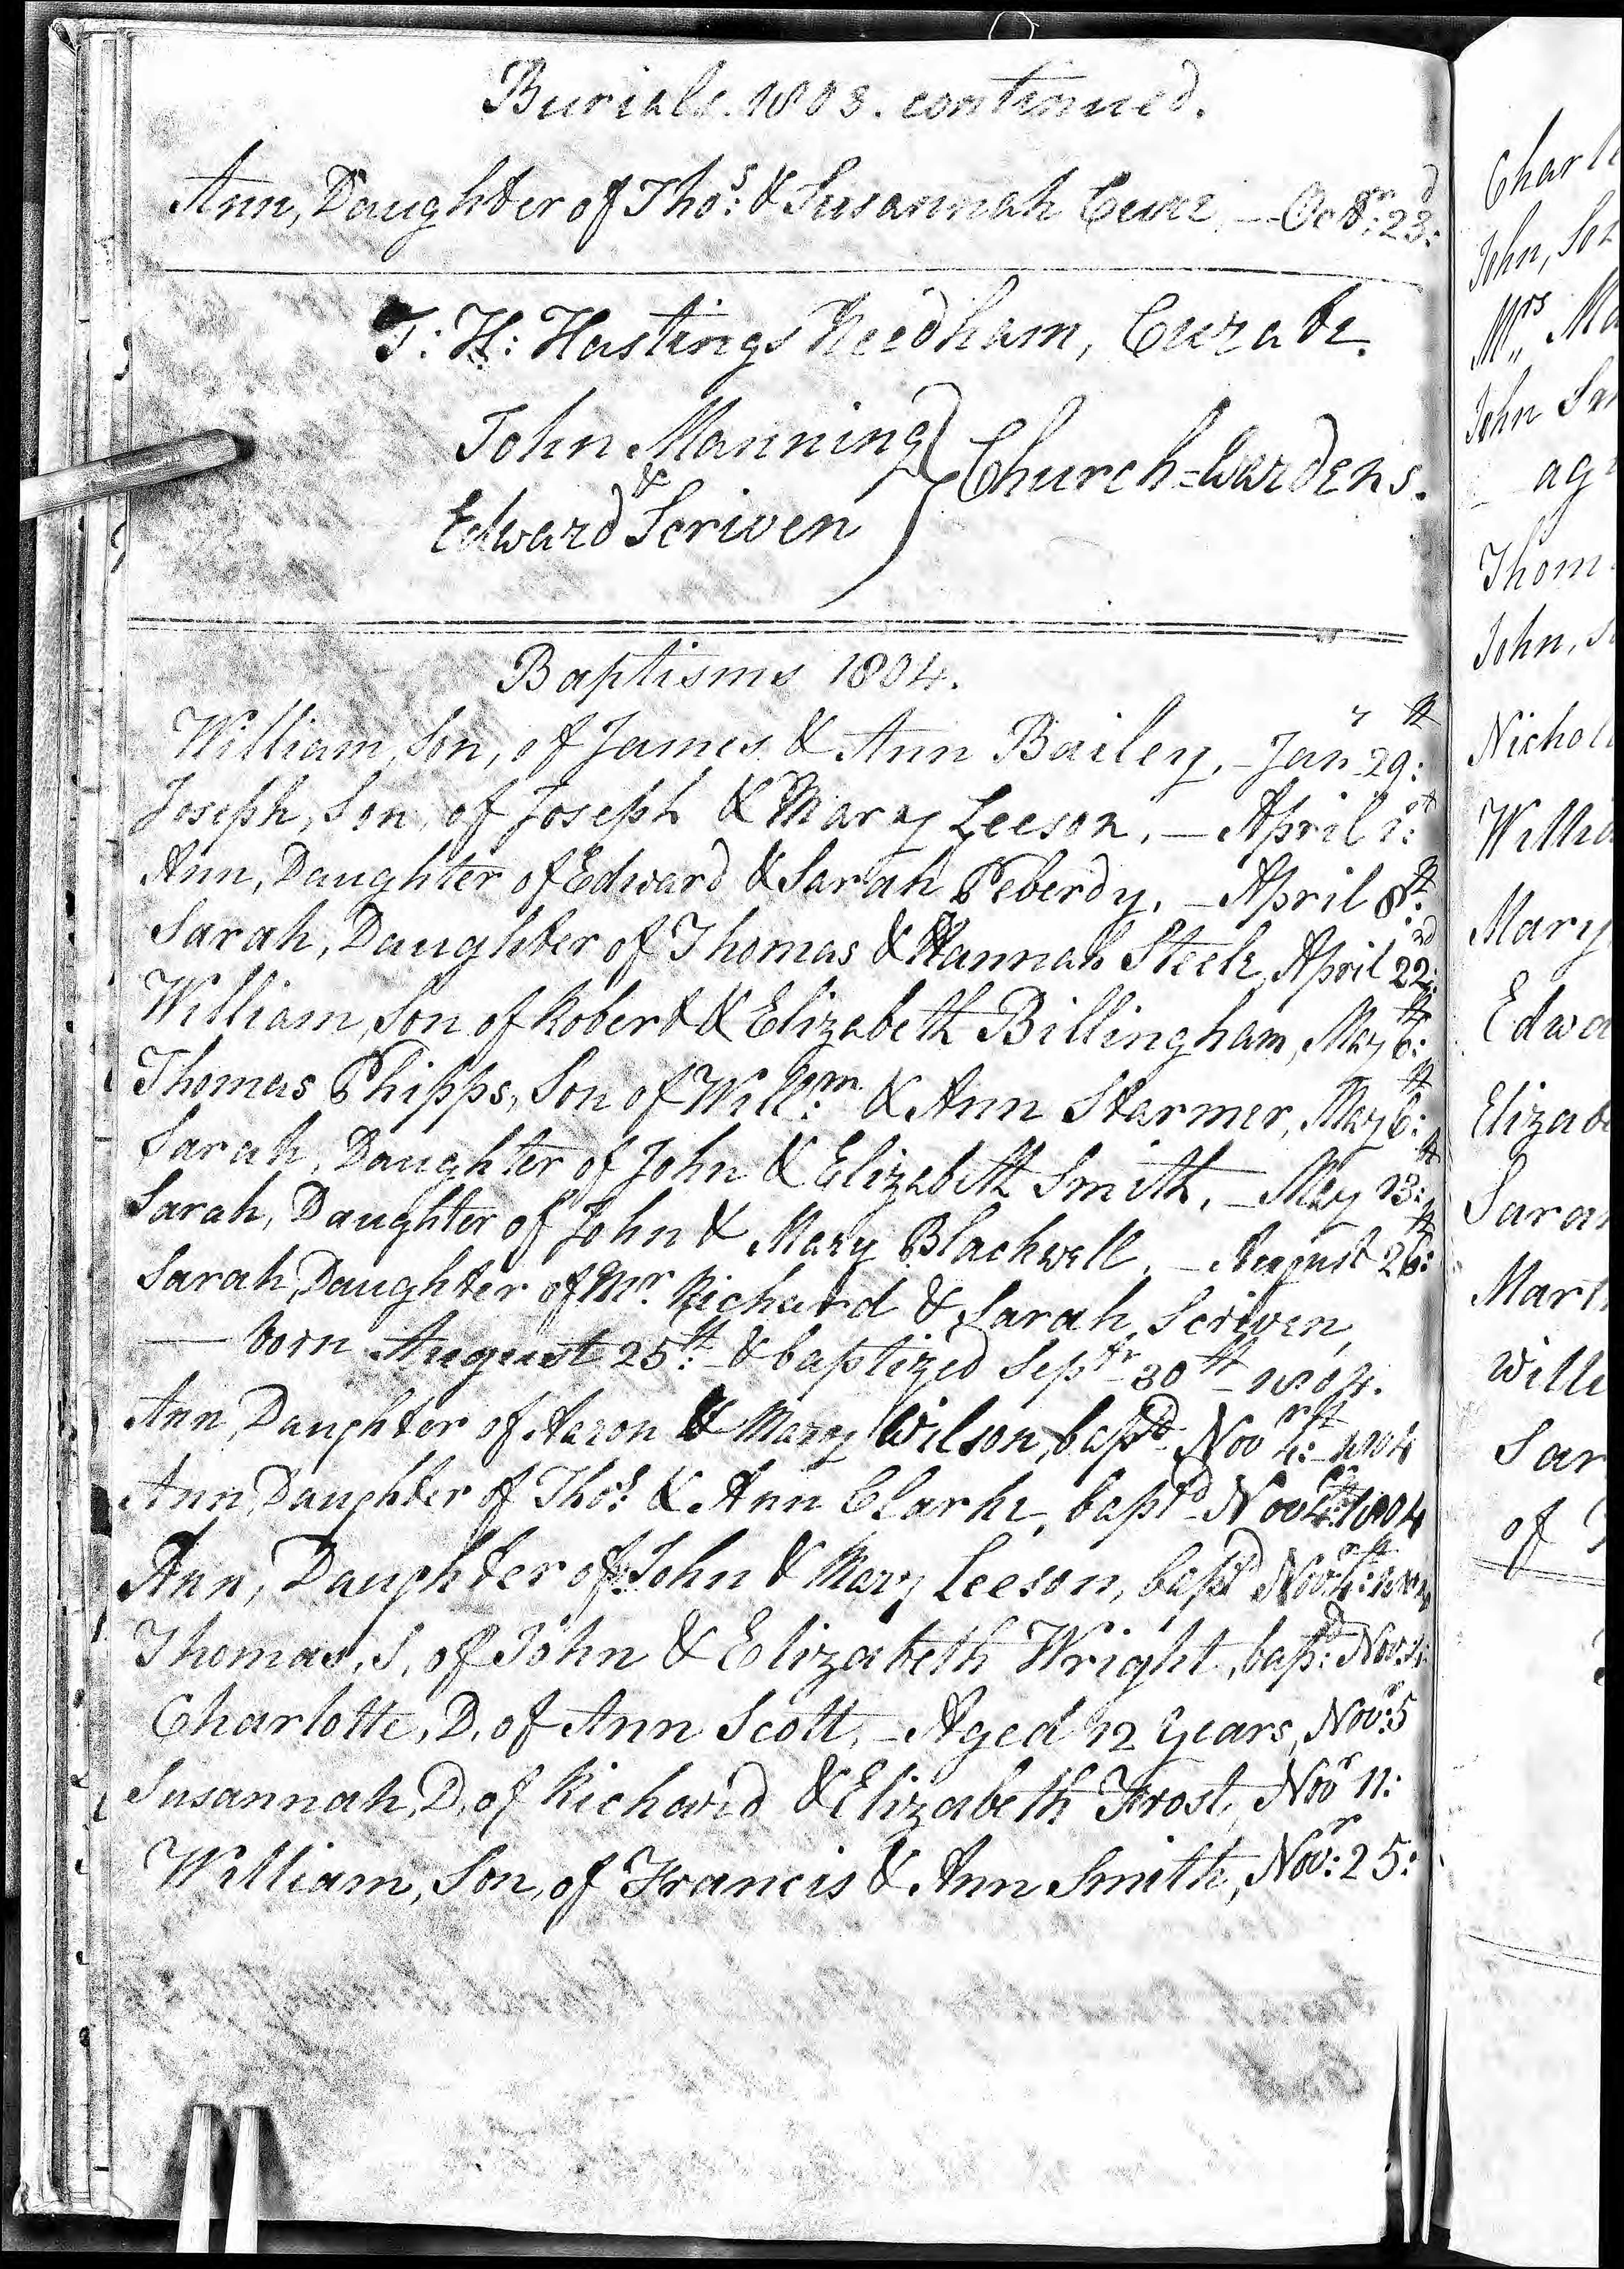 Burials. 1803. continued.
Ann, Daughter of Thos: & Susannah — Octr: 23d:
T: H: Hastings Needham, Curate.
John Manning
& Church=wardens.
Edward Scriven
Baptisms 1804.
William, Son, of James & Ann Bailey, - Jany 29th:
Joseph, Son, of Joseph & Mary Leeson, — April 1st:
Ann, Daughter of Edward & Sarah Peberdy, — April 8th:
Sarah, Daughter of Thomas & Hannah Steele, April 22nd:
William, Son of Robert & Elizabeth Billingham, May 6th:
Thomas Phipps, Son of Willm: & Ann Starmer, May 6th:
Sarah, Daughter of John & Elizabeth Smith, — May 13th:
Sarah, Daughter of John & Mary Blackwell, — August 26th:
Sarah, Daughter of Mr. Richard & Sarah Scriven,
— born August 25th: & baptized Septr 30th 1804.
Ann, Daughter of Aaron & Mary Wilson, bapd Novr 4th: 1804
Ann, Daughter of Thos: & Ann Clarke, baptd Novr 4th: 1804
Ann, Daughter of John & Mary Leeson, bapd Novr 4th: 1804
Thomas, S, of John & Elizabeth Wright, bapd: Nov: 4:
Charlotte, D, of Ann Scott, — Aged 12 years, Novr: 5
Susannah, D, of Richard & Elizabeth Frost, Novr 11:
William, Son, of Francis & Ann Smith, Novr: 25:
Charl
John, So
Mrs Ma
John Sm
ag
Thom
John, S
Nichol
Willia
Mary
Edwa
Elizab
Sara
Mart
Willi
Sar
of